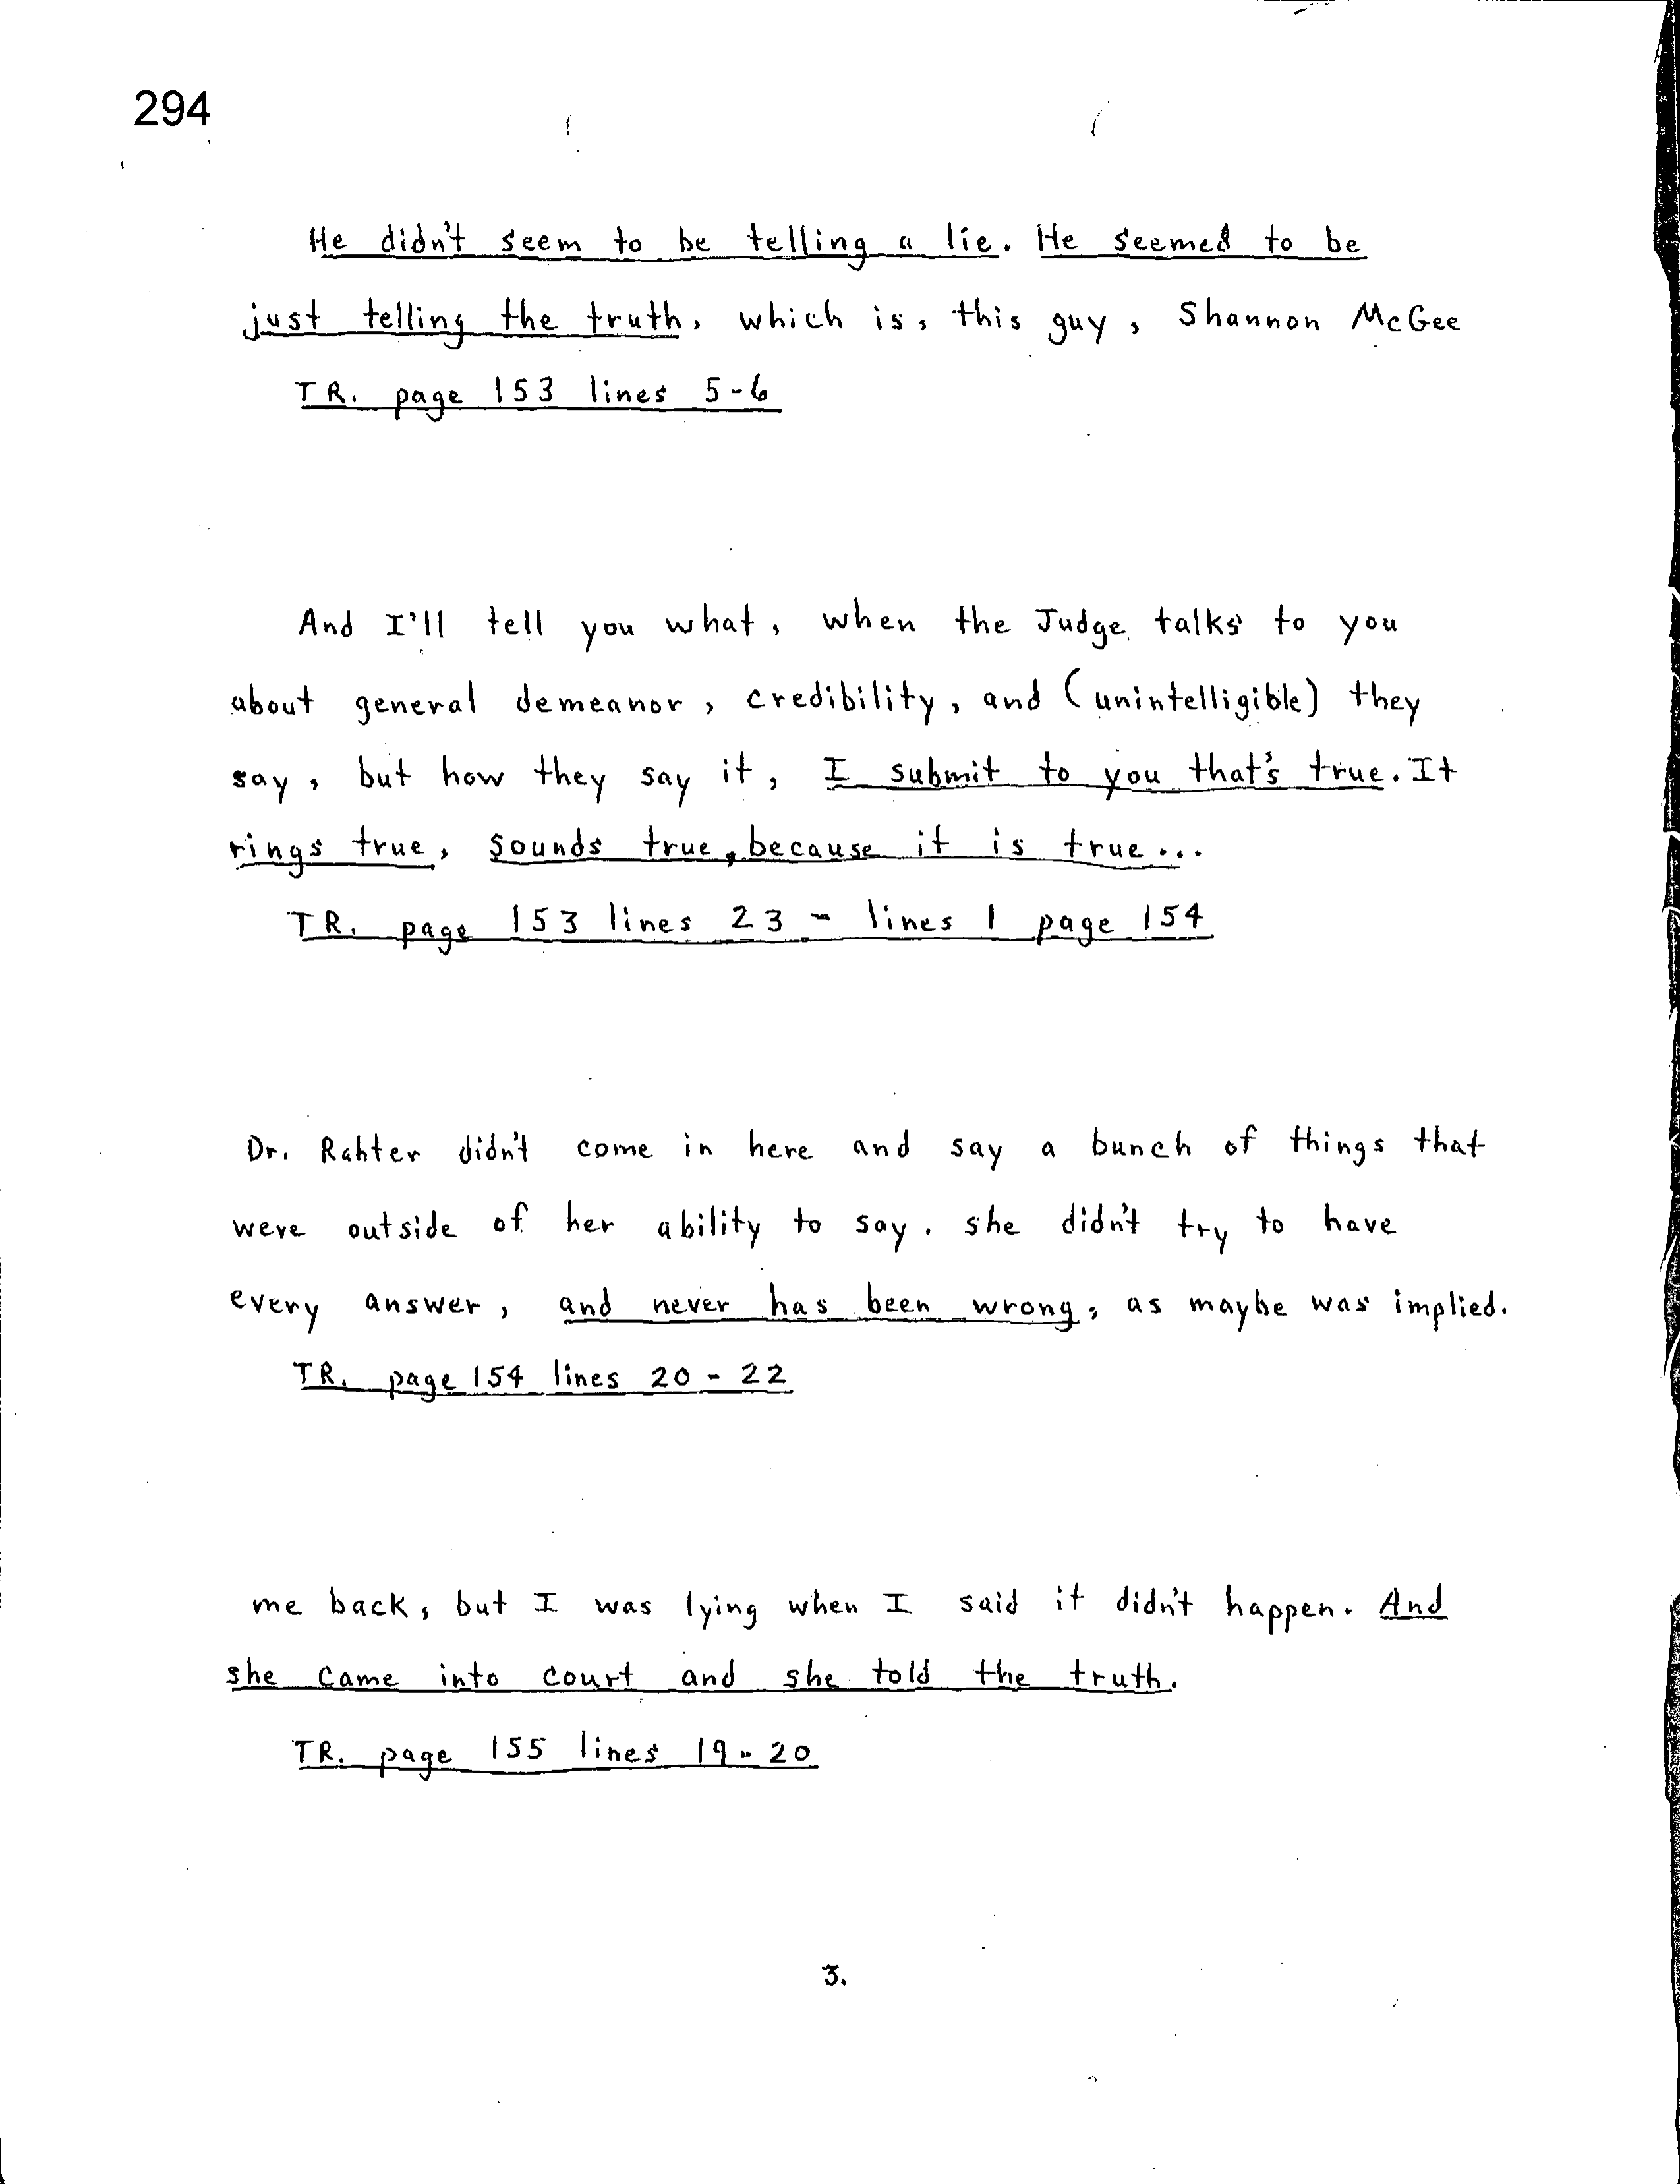 294
He didn't seem to be telling a lie. He seemed to be
just telling the truth, which is, this guy, Shannon McGee
TR. page 153 lines 5-6
And I'll tell you what, when the Judge talks to you
about general demeanor, credibility, and (unintelligible) they
say, but how they say it, I submit to you that's true. It
rings true, sounds true, because it is true...
TR. page 153 lines 23 - lines 1 page 154
Dr. Rahter didn't come in here and say a bunch of things that
were outside of her ability to say. she didn't try to have
every answer, and never has been wrong, as maybe was implied.
TR. page 154 lines 20 - 22
me back, but I was lying when I said it didn't happen. And
she came into court and she told the truth.
TR. page 155 lines 19-20
3.